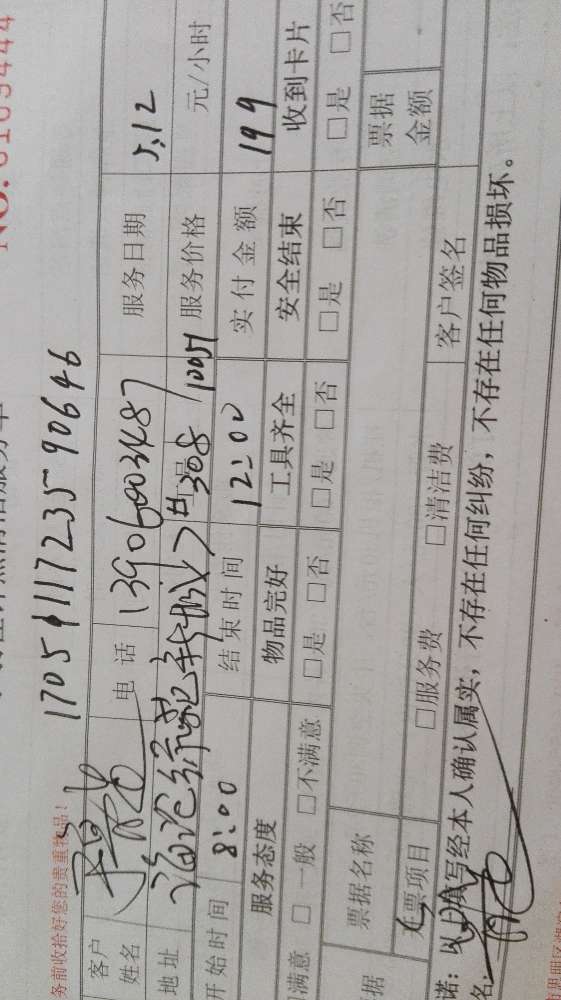 NO.
务前收拾好您的贵重物品！
17059111723590646
客户姓名 电话 13906003487 服务日期 5.12
地址 7#308 10051 服务价格 元/小时
开始时间 8:00 结束时间 12:00 实付金额 199
服务态度 物品完好 工具齐全 安全结束 收到卡片
满意 □一般 □不满意 □是 □否 □是 □否 □是 □否 □是 □否
票据名称 票据金额
据 项目 □服务费 □清洁费 客户签名
诺：以上填写经本人确认属实，不存在任何纠纷，不存在任何物品损坏。
名：